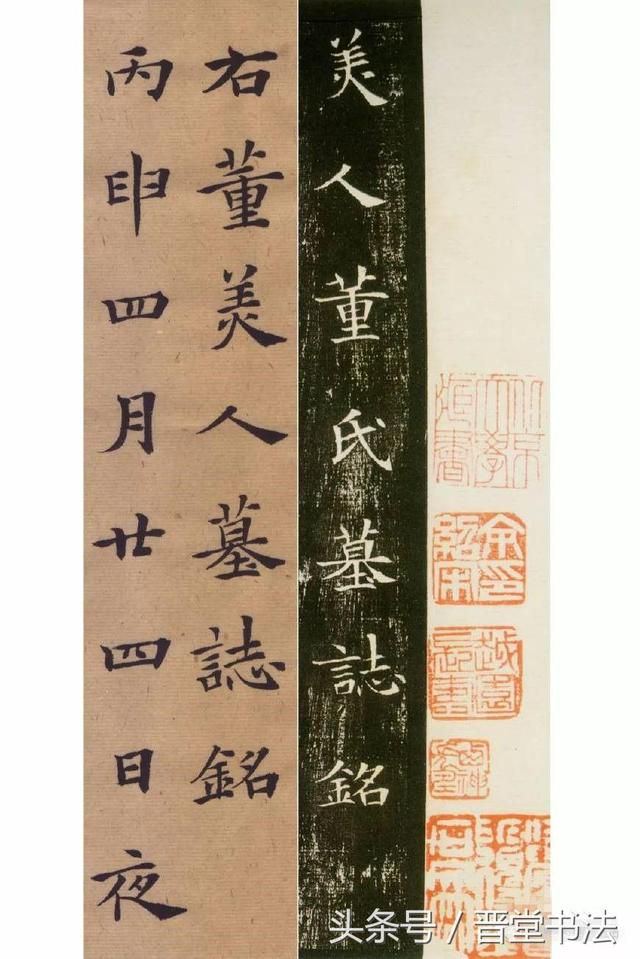 余印紹宋
美人董氏墓誌銘
右董美人墓誌銘
丙申四月廿四日夜
头条号 / 晋堂书法